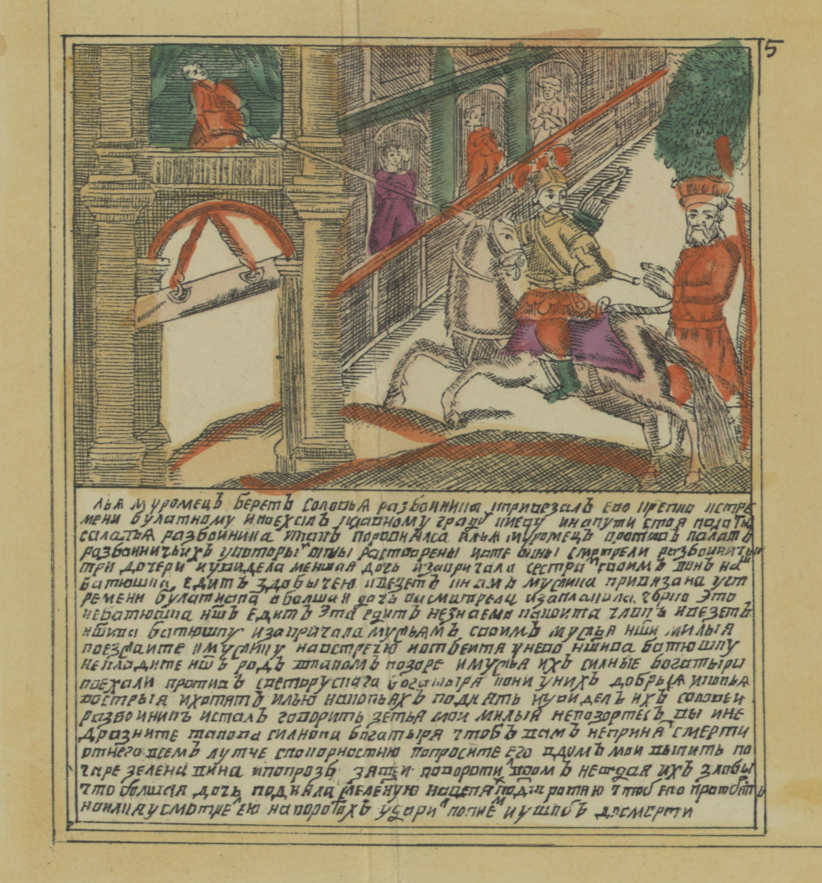 5
Лья муромецъ беретъ соловья разбоиника ипривезалъ ево крепко кстре
мени булатному ипоехалъ кславному граду киеву инапути стоя палаты
салавья разбоиника итакъ поровнялса илья муромецъ противъ палатъ
разбоиничьихъ укоторы окны растворены ивте окны смотрели разбоиничьи
три дочери иувидела меншая дочь изакричала сестра своимъ вонъ на
батюшка едитъ здобычею ивезетъ кнамъ мужика привязана уст
ремени булатнава а болшая дочь посмотрела изаплакала горко это
небатюшка ншъ едитъ Эта едитъ незнаема какоита члвкъ ивезетъ
ншива батюшку изакричала мужьямъ своимъ мужья нши милыя
поезжаите кмужику навстречю иотбеита унево ншива батюшку
некладите ншъ родъ втакомъ позоре имужья ихъ силные богатыри
поехали противъ светорускага богатыря кони унихъ добрыя икопья
вострыя ихотятъ илью накопьяхъ поднять иувиделъ ихъ соловеи
разбоиникъ исталъ говорить зетья мои милыя непозортесь вы ине
дразните такова силнова богатыря чтобъ вамъ неприня смерти
отнего всемъ лутче спокорностию попросите его вдомъ мои выпить по
чаре зелена вина ипопрозб зятеи повороти вдомъ неведая ихъ злобы
что болшая дочь подняла железную нацепя подворотню чтоб его протбить
ноилия усмотре ею наворотахъ удари копие и ушибъ досмерти